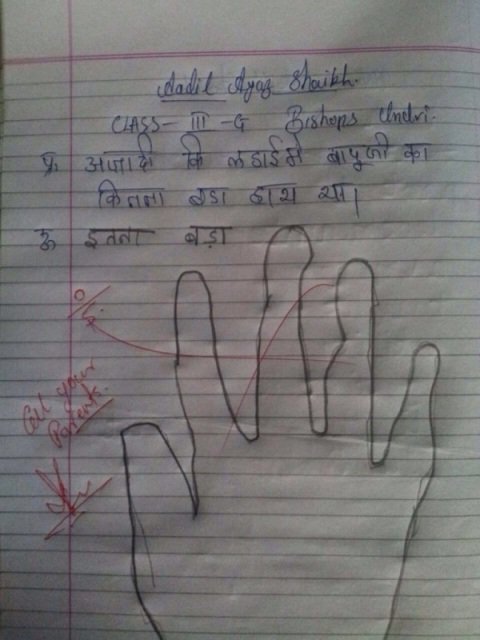 Aadil Ayaz Shaikh.
CLASS- III -G Bishops Undri.
प्र. अजादी कि लडाई में बापुजी का
कितना बडा हाथ था।
उ. इतना बड़ा
0
Call your
Parents.